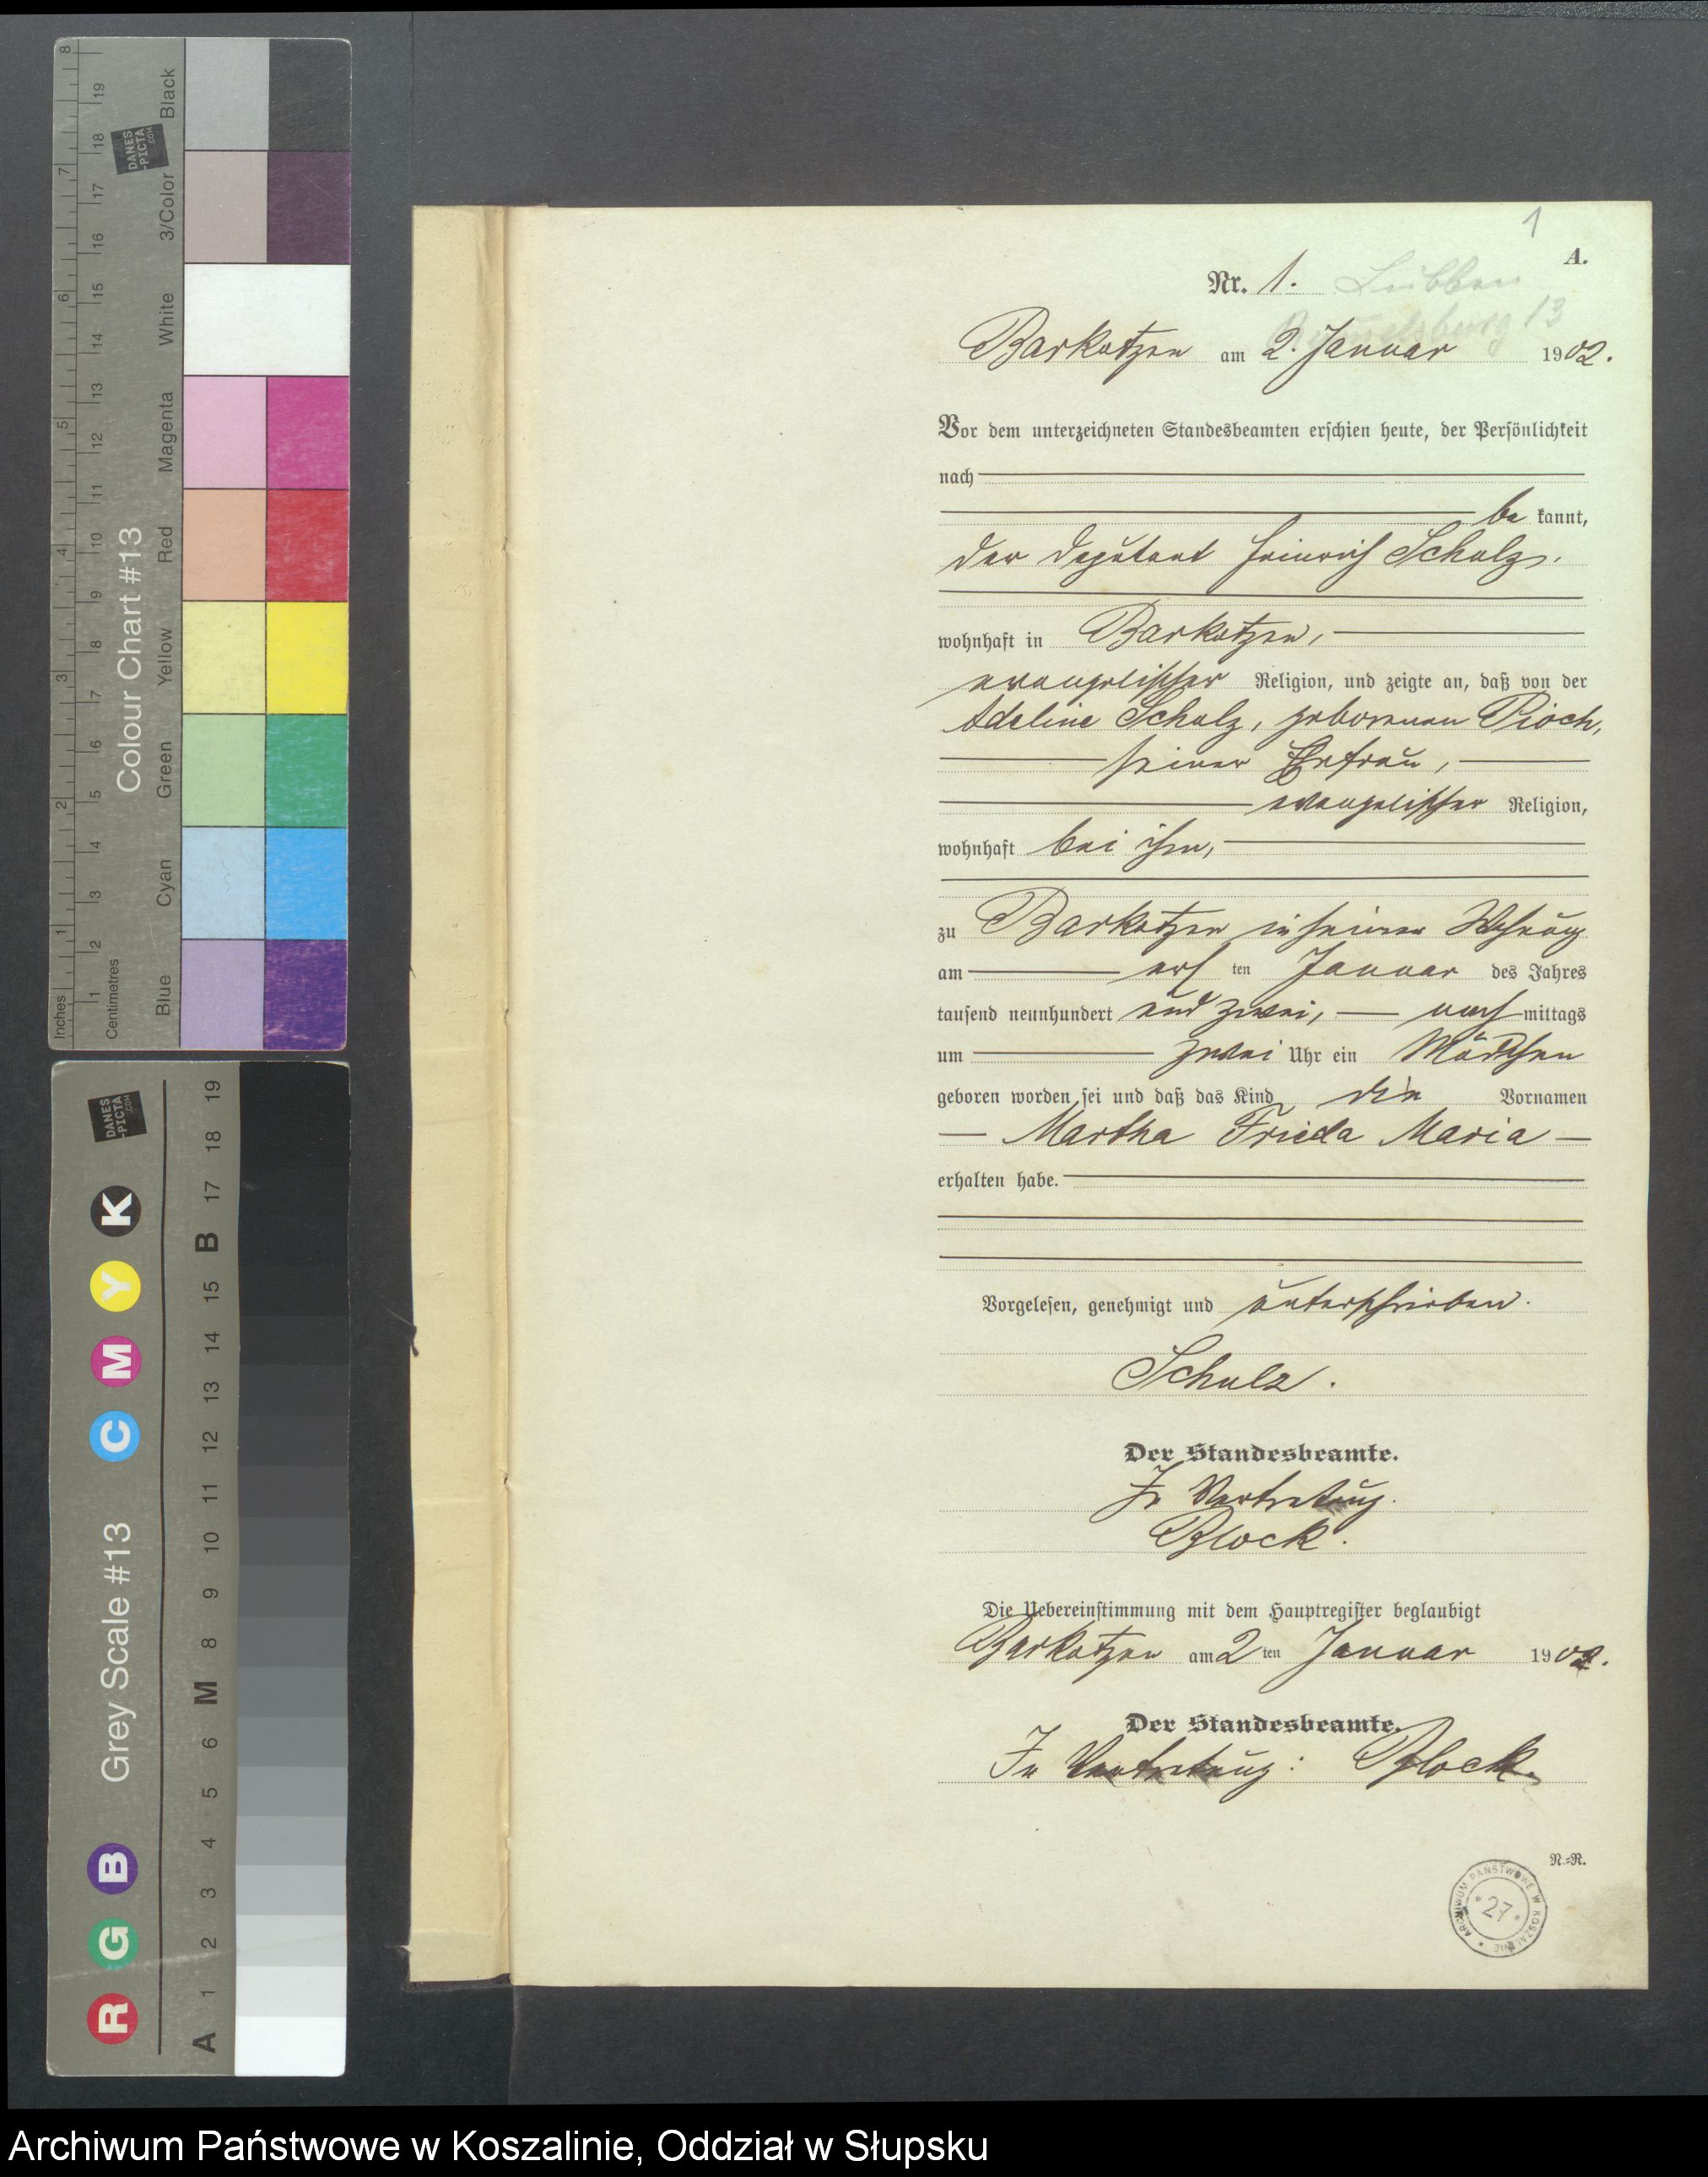 1
A.
Nr. 1. Lübben
Rummelsburg 13
Barkotzen am 2. Januar 1902.
Vor dem unterzeichneten Standesbeamten erschien heute, der Persönlichkeit
nach
be kannt,
der Deputant Heinrich Schulz.
wohnhaft in Barkotzen,
evangelischer Religion, und zeigte an, daß von der
Adeline Schulz, geborenen Pioch,
seiner Ehefrau,
evangelischer Religion,
wohnhaft bei ihm,
zu Barkotzen in seiner Wohnung
am ersten Januar des Jahres
tausend neunhundert und zwei, nachmittags
um zwei Uhr ein Mädchen
geboren worden sei und daß das Kind die Vornamen
Martha Frieda Maria
erhalten habe.
Vorgelesen, genehmigt und unterschrieben.
Schulz.
Der Standesbeamte.
In Vertretung.
Block.
Die Uebereinstimmung mit dem Hauptregister beglaubigt
Barkotzen am 2ten Januar 1902.
Der Standesbeamte.
In Vertretung: Block.
N.=R.
ARCHIWUM PAŃSTWOWE W KOSZALINIE
* 27 *
Inches
1 2 3 4 5 6 7 8
Centimetres
1 2 3 4 5 6 7 8 9 10 11 12 13 14 15 16 17 18 19
Colour Chart #13
Blue Cyan Green Yellow Red Magenta White 3/Color Black
DANES
-PICTA
.COM
Grey Scale #13
R G B C M Y K
A 1 2 3 4 5 6 M 8 9 10 11 12 13 14 15 B 17 18 19
DANES
-PICTA
.COM
Archiwum Państwowe w Koszalinie, Oddział w Słupsku